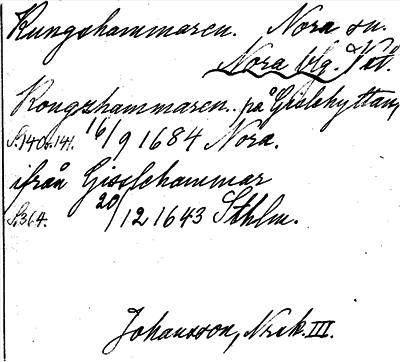 Kungshammaren. Nora sn.
Nora blg. Vstl.
Kongzhammaren. på Gislehyttan,
S.140o.141. 16/9 1684 Nora.
ifrån Gisslehammar
S.364. 20/12 1643 Sthlm.
Johansson, Norak. III.